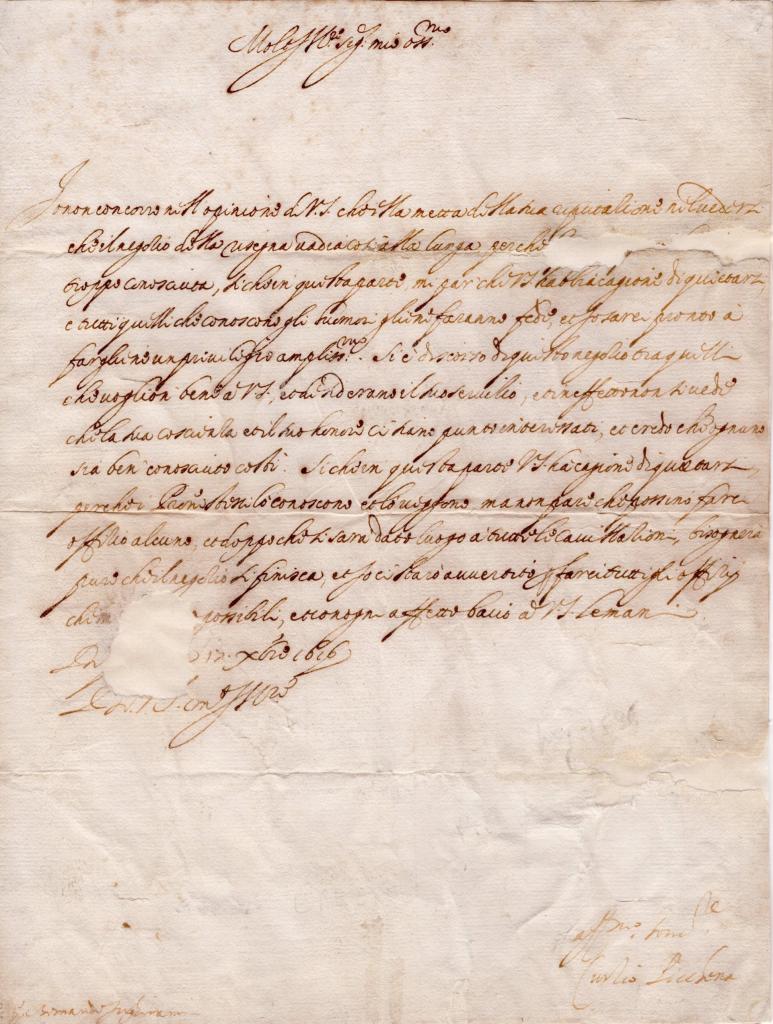 Molto Ill.re Sig.r mio oss.mo
Io non concorro nell opinione di V.S. che ella metta della sua reputatione nel veders
che il negotio della rasegna vadia cosi alla lunga perche
troppo conosciuta, si che in questa parte, mi par che V.S. habbia cagione di quietarsi,
e tutti quelli che conoscono gli humori gliene faranno fede, et io sarei pronto à
fargliene un privilegio ampliss.mo. Si è discorso di questo negotio tra quelli
che voglion bene à V.S., et desiderano il suo servitio, et in effetto non si vede
che la sua coscienza et il suo honore ci siano punto interessati, et credo che ognuno
sia ben conosciuto costì. Si che in questa parte V.S. ha cagione di quietarsi,
perche i Proni stessi lo conoscono et lo veggono, ma non pare che possino fare
offitio alcuno, et doppo che si sarà dato luogo à tutte le cavillationi, bisognerà
pure che il negotio si finisca, et io ci starò avvertito per farci tutti gli offitij
che m possibili, et con ogni affetto bacio à V.S. le mani.
Di 12 Xbre 1616
Di V.S. molto Ill.re
aff.mo ser.re
Curtio Picchena
S.r Bernardo